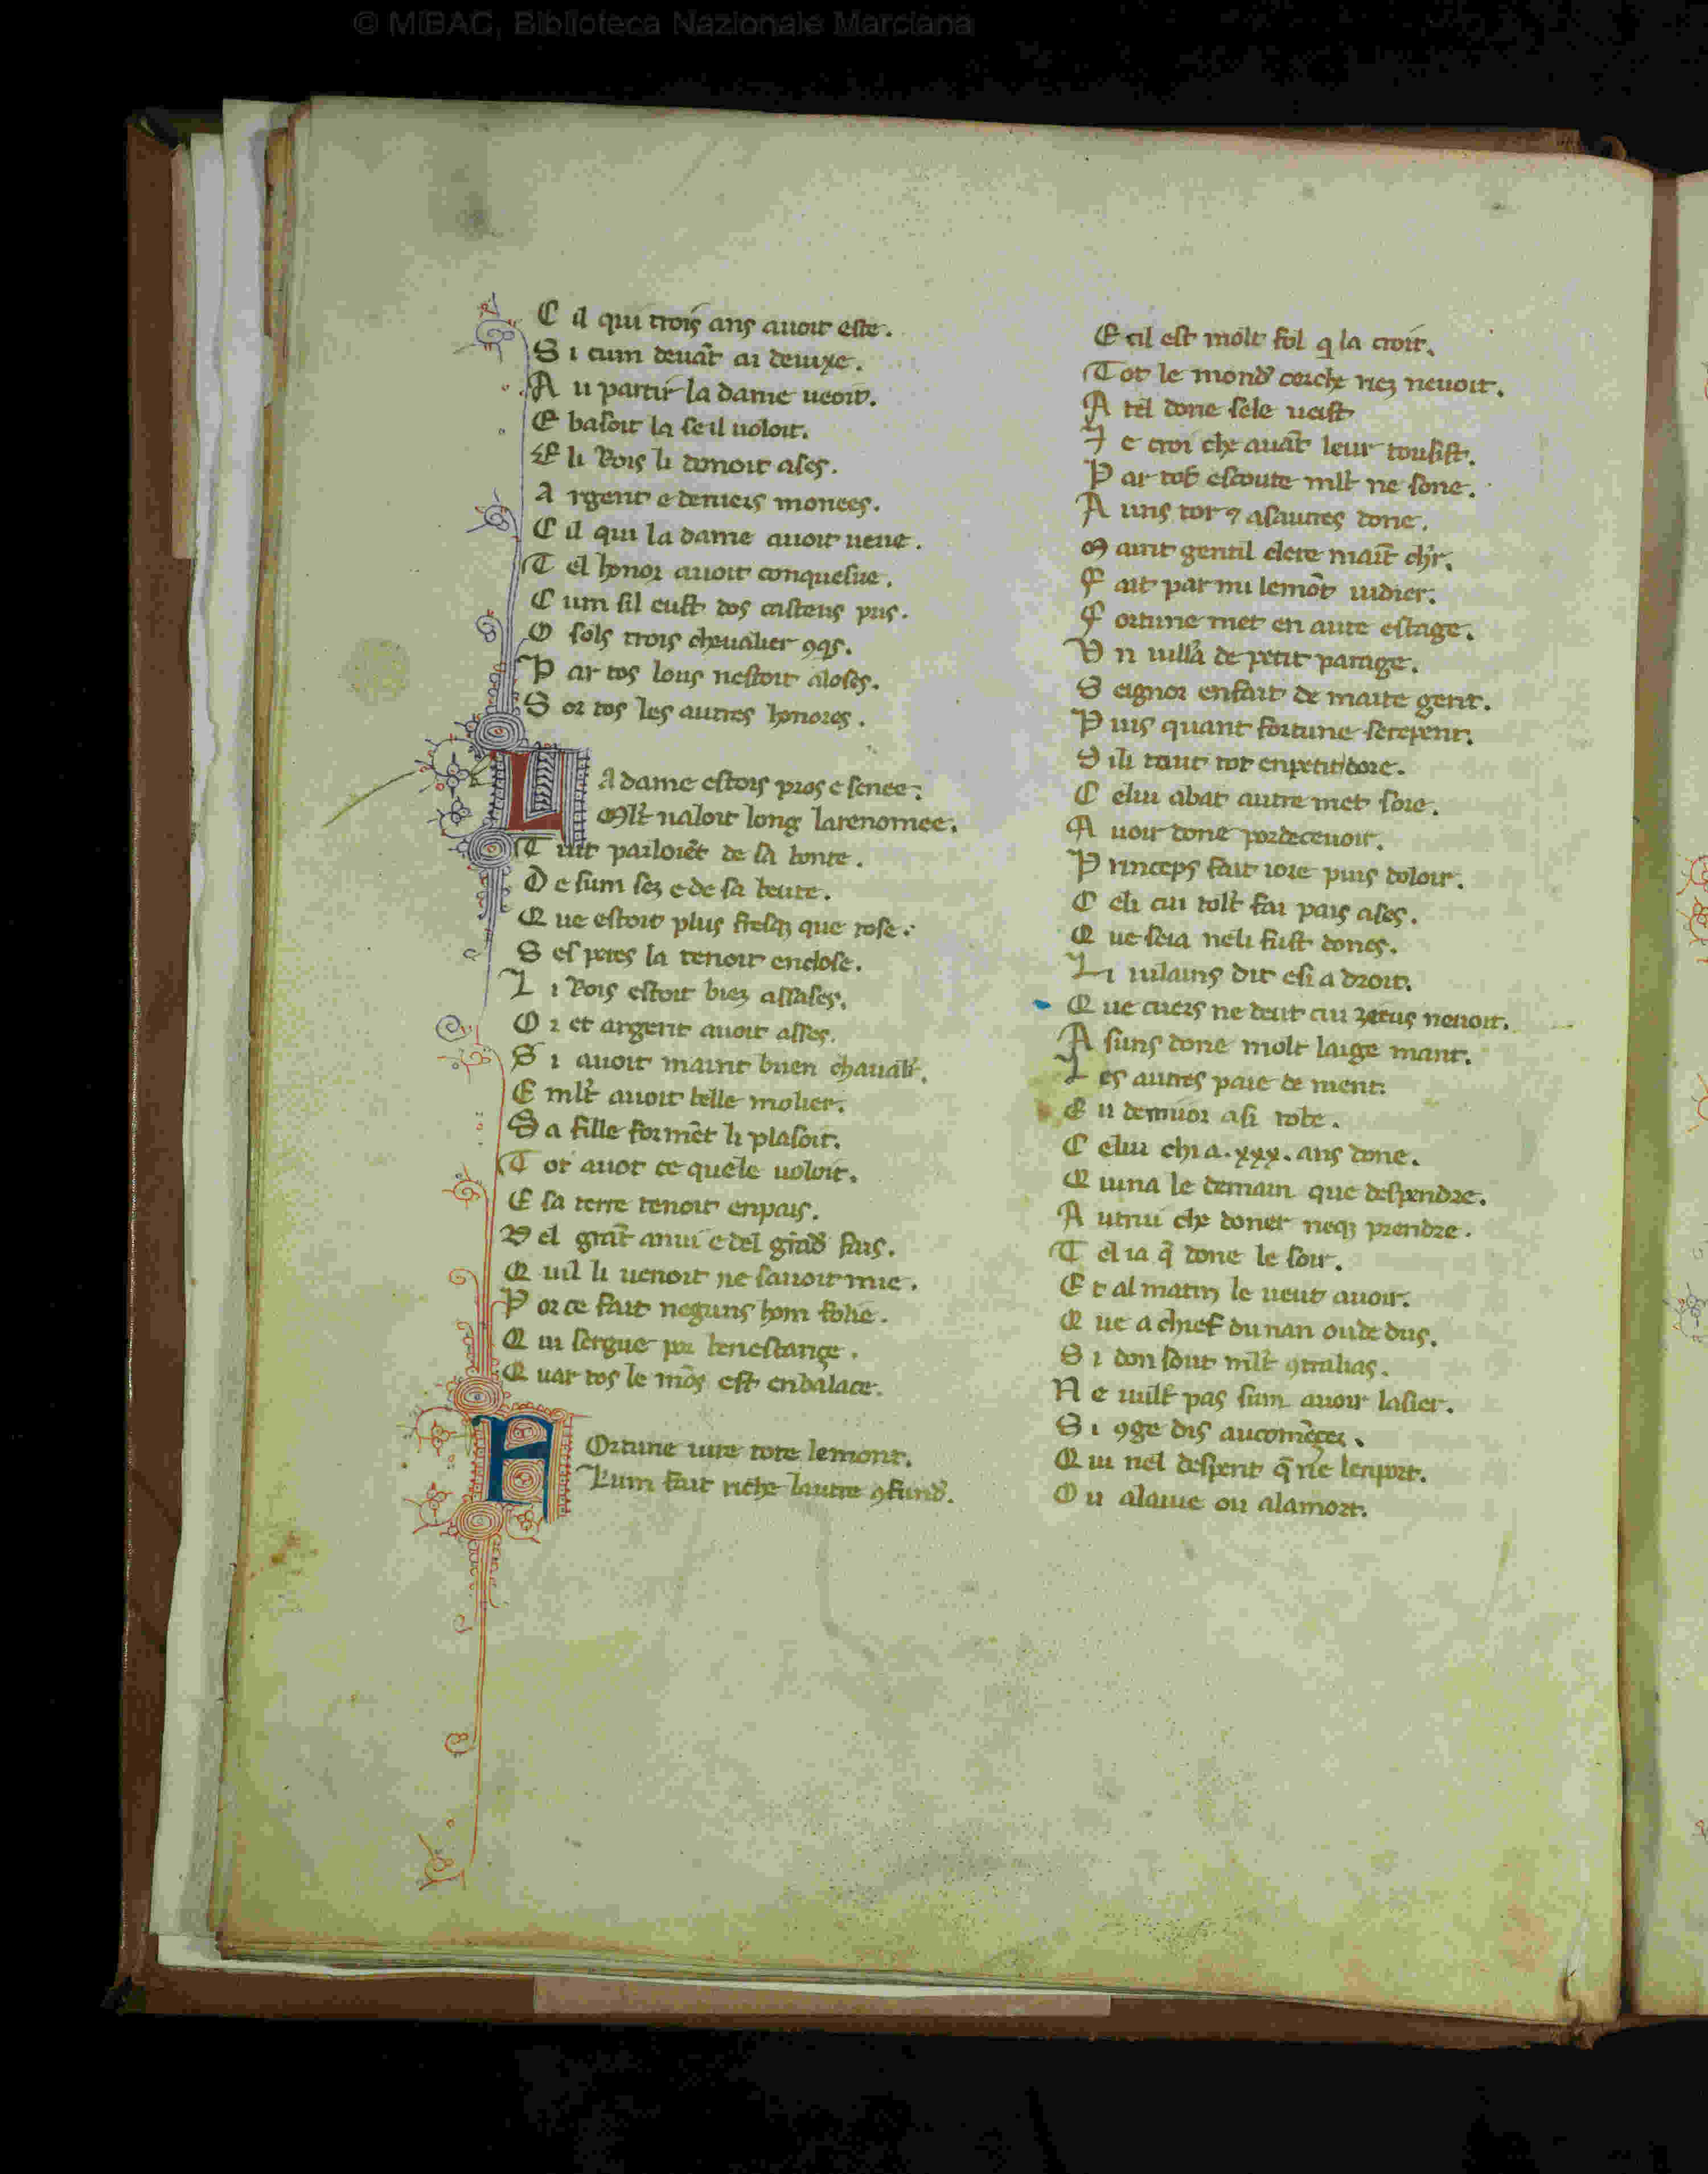 © MiBAC, Biblioteca Nazionale Marciana
C il qui trois ans auoit este.
S i cum deuāt ai deuixe.
A u partir la dame ueoit.
E basoit la se il uoloit.
E li Rois li donoit ases.
A rgent e deniers monees.
C il qui la dame auoit ueue.
T el honor auoit conquesue.
C um sil eust dos casteus pris.
O sols trois cheualier ꝯq̄s.
P ar tos lous nestoit aloses.
S or tos les autres honores.
L A dame estois pros e senee.
Ml̄t ualoit long la renomee.
T uit parloiēt de sa bonte.
D e sum sez e de sa beute.
Q ue estoit plus fresq; que rose.
S es peres la tenoit enclose.
L i Rois estoit biez assases.
O r et argent auoit asses.
S i auoit maint buen chaualr̄.
E ml̄t auoit belle molier.
S a fille formēt li plasoit.
T ot auot ce quele uoloit.
E sa terre tenoit enpais.
D el grāt anui e del grād fais.
Q uil li uenoit ne sauoit mie.
P or ce fait neguns hom folie.
Q ui sergue por benestançe.
Q uar tos le mōs est enbalace.
F Ortune uire tote lemont.
Lum fait riche lautre ꝯfund.
E cil est molt fol q la croit.
Tot le mond cerche riez neuoit.
A tel done sele ueist
J e croi che auāt leur tousist.
P ar tot escoute ml̄t ne sone.
A uns tor ⁊ asautres done.
M aint gentil clerc maīt ch'r.
F ait par mi lemōt uidier.
F ortune met en aute estage.
U n uilla de petit parage.
S eignor enfait de mainte gent.
P uis quant fortune serepent.
S ili taut tot enpetit dore.
C elui abat autre met sore.
A uoir done por deceuoir.
P rinceps fait ioie puis doloir.
C eli cui tolt fai pais ases.
Q ue seia neli fust dones.
L i uilains dit esi a droit.
Q ue cuers ne deut cui zeus neuoit.
A suns done molt large mant.
L es autres paie de nient.
E n demuor asi robe.
C elui chi a .xxx. ans done.
Q iuna le demain que despendre.
A utrui che doner neq; prendre.
T el ia q̄ done le soir.
E t al matin le ueut auoir.
Q ue a chief dun an ou de dus.
S i don sout ml̄t ꝯtralias.
N e uult pas sum auoir lasier.
S i ꝯge dis aucomēçer.
Q ui nel despent q̄ ne lenport.
O u alauie ou alamort.